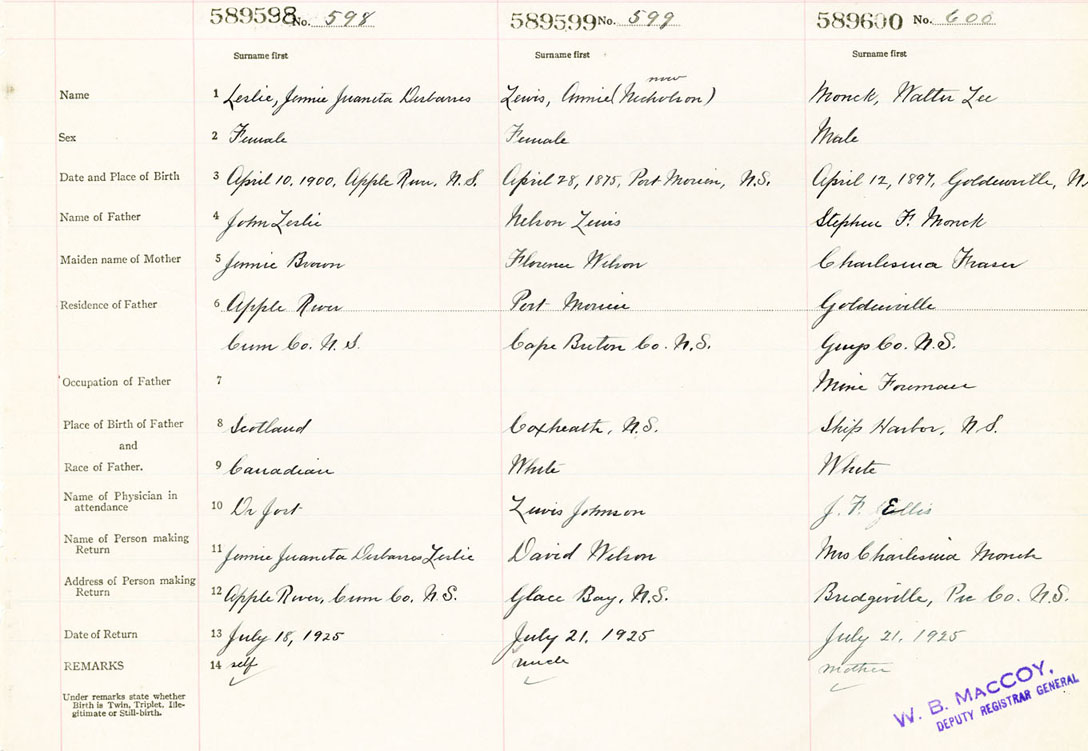 589598 No. 598 589599 No. 599 589600 No. 600
Surname first Surname first Surname first
now
Name 1 Leslie, Jennie Juaneta Desbarres Lewis, Annie (Nicholson) Monck, Walter Lee
Sex 2 Female Female Male
Date and Place of Birth 3 April 10, 1900, Apple River, N.S. April 28, 1875, Port Morien, N.S. April 12, 1897, Goldenville, N.
Name of Father 4 John Leslie Nelson Lewis Stephen F. Monck
Maiden name of Mother 5 Jennie Brown Florence Wilson Charlesina Fraser
Residence of Father 6 Apple River Port Morien Goldenville
Cum Co. N.S. Cape Breton Co. N.S. Guys Co. N.S.
Occupation of Father 7 Mine Foreman
Place of Birth of Father 8 Scotland Coxheath, N.S. Ship Harbor, N.S.
and
Race of Father. 9 Canadian White White
Name of Physician in
attendance 10 Dr Lewis Johnson J. F. Ellis
Name of Person making
Return 11 Jennie Juaneta Desbarres Leslie David Wilson Mrs Charlesina Monck
Address of Person making
Return 12 Apple River, Cum Co. N.S. Glace Bay, N.S. Bridgeville, Pic Co. N.S.
Date of Return 13 July 18, 1925 July 21, 1925 July 21, 1925
REMARKS 14 self uncle mother
Under remarks state whether
Birth is Twin, Triplet, Ille-
gitimate or Still-birth.
W. B. MACCOY,
DEPUTY REGISTRAR GENERAL